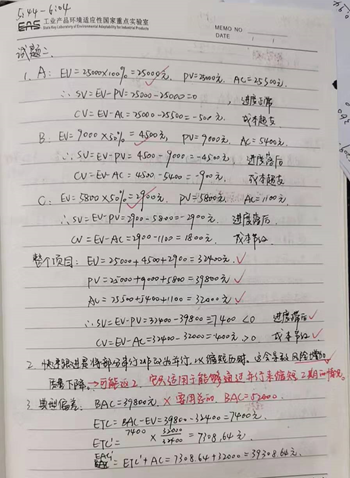 5144-6:04
EAS 工业产品环境适应性国家重点实验室
MEMO NO.
DATE
试题二.
1. A: EV=25000×100%=25000元, PV=25000元, AC=25500元.
∴ SV=EV-PV=25000-25000=0, 进度正常
CV=EV-AC=25000-25500=-500元. 成本超支
B. EV=9000×50%=4500元, PV=9000元. AC=5400元
∴ SV=EV-PV=4500-9000=-4500元. 进度落后
CV=EV-AC=4500-5400=-900元. 成本超支
C: EV=5800×50%=2900元. PV=5800元. AC=1100元
∴ SV=EV-PV=2900-5800=-2900元. 进度落后
CV=EV-AC=2900-1100=1800元. 成本节约
整个项目: EV=25000+4500+2900=32400元.
PV=25000+9000+5800=39800元
AC=25500+5400+1100=32000元
∴ SV=EV-PV=32400-39800=-7400<0 进度落后
CV=EV-AC=32400-32000=400元>0 成本节约
2. 快速跟进是将部分串行工作改为并行,以缩短历时. 这会导致风险增加
质量下降. 可能返工, 它只适用于能够通过并行来缩短工期的情况.
3. 典型偏差. BAC=39800元. × BAC=52000
ETC=BAC-EV=39800-32400=7400元.
ETC'=7400×32000/32400=7308.64元.
EAC'=ETC'+AC=7308.64+32000=39308.64元.